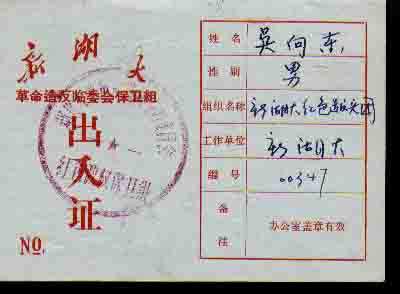 新湖大
革命造反临委会保卫組
出入证
NO.
姓名 吴向东
性别 男
组织名称 新湖大红色造反兵团
工作单位 新湖大
编号 00347
备注 办公室盖章有效